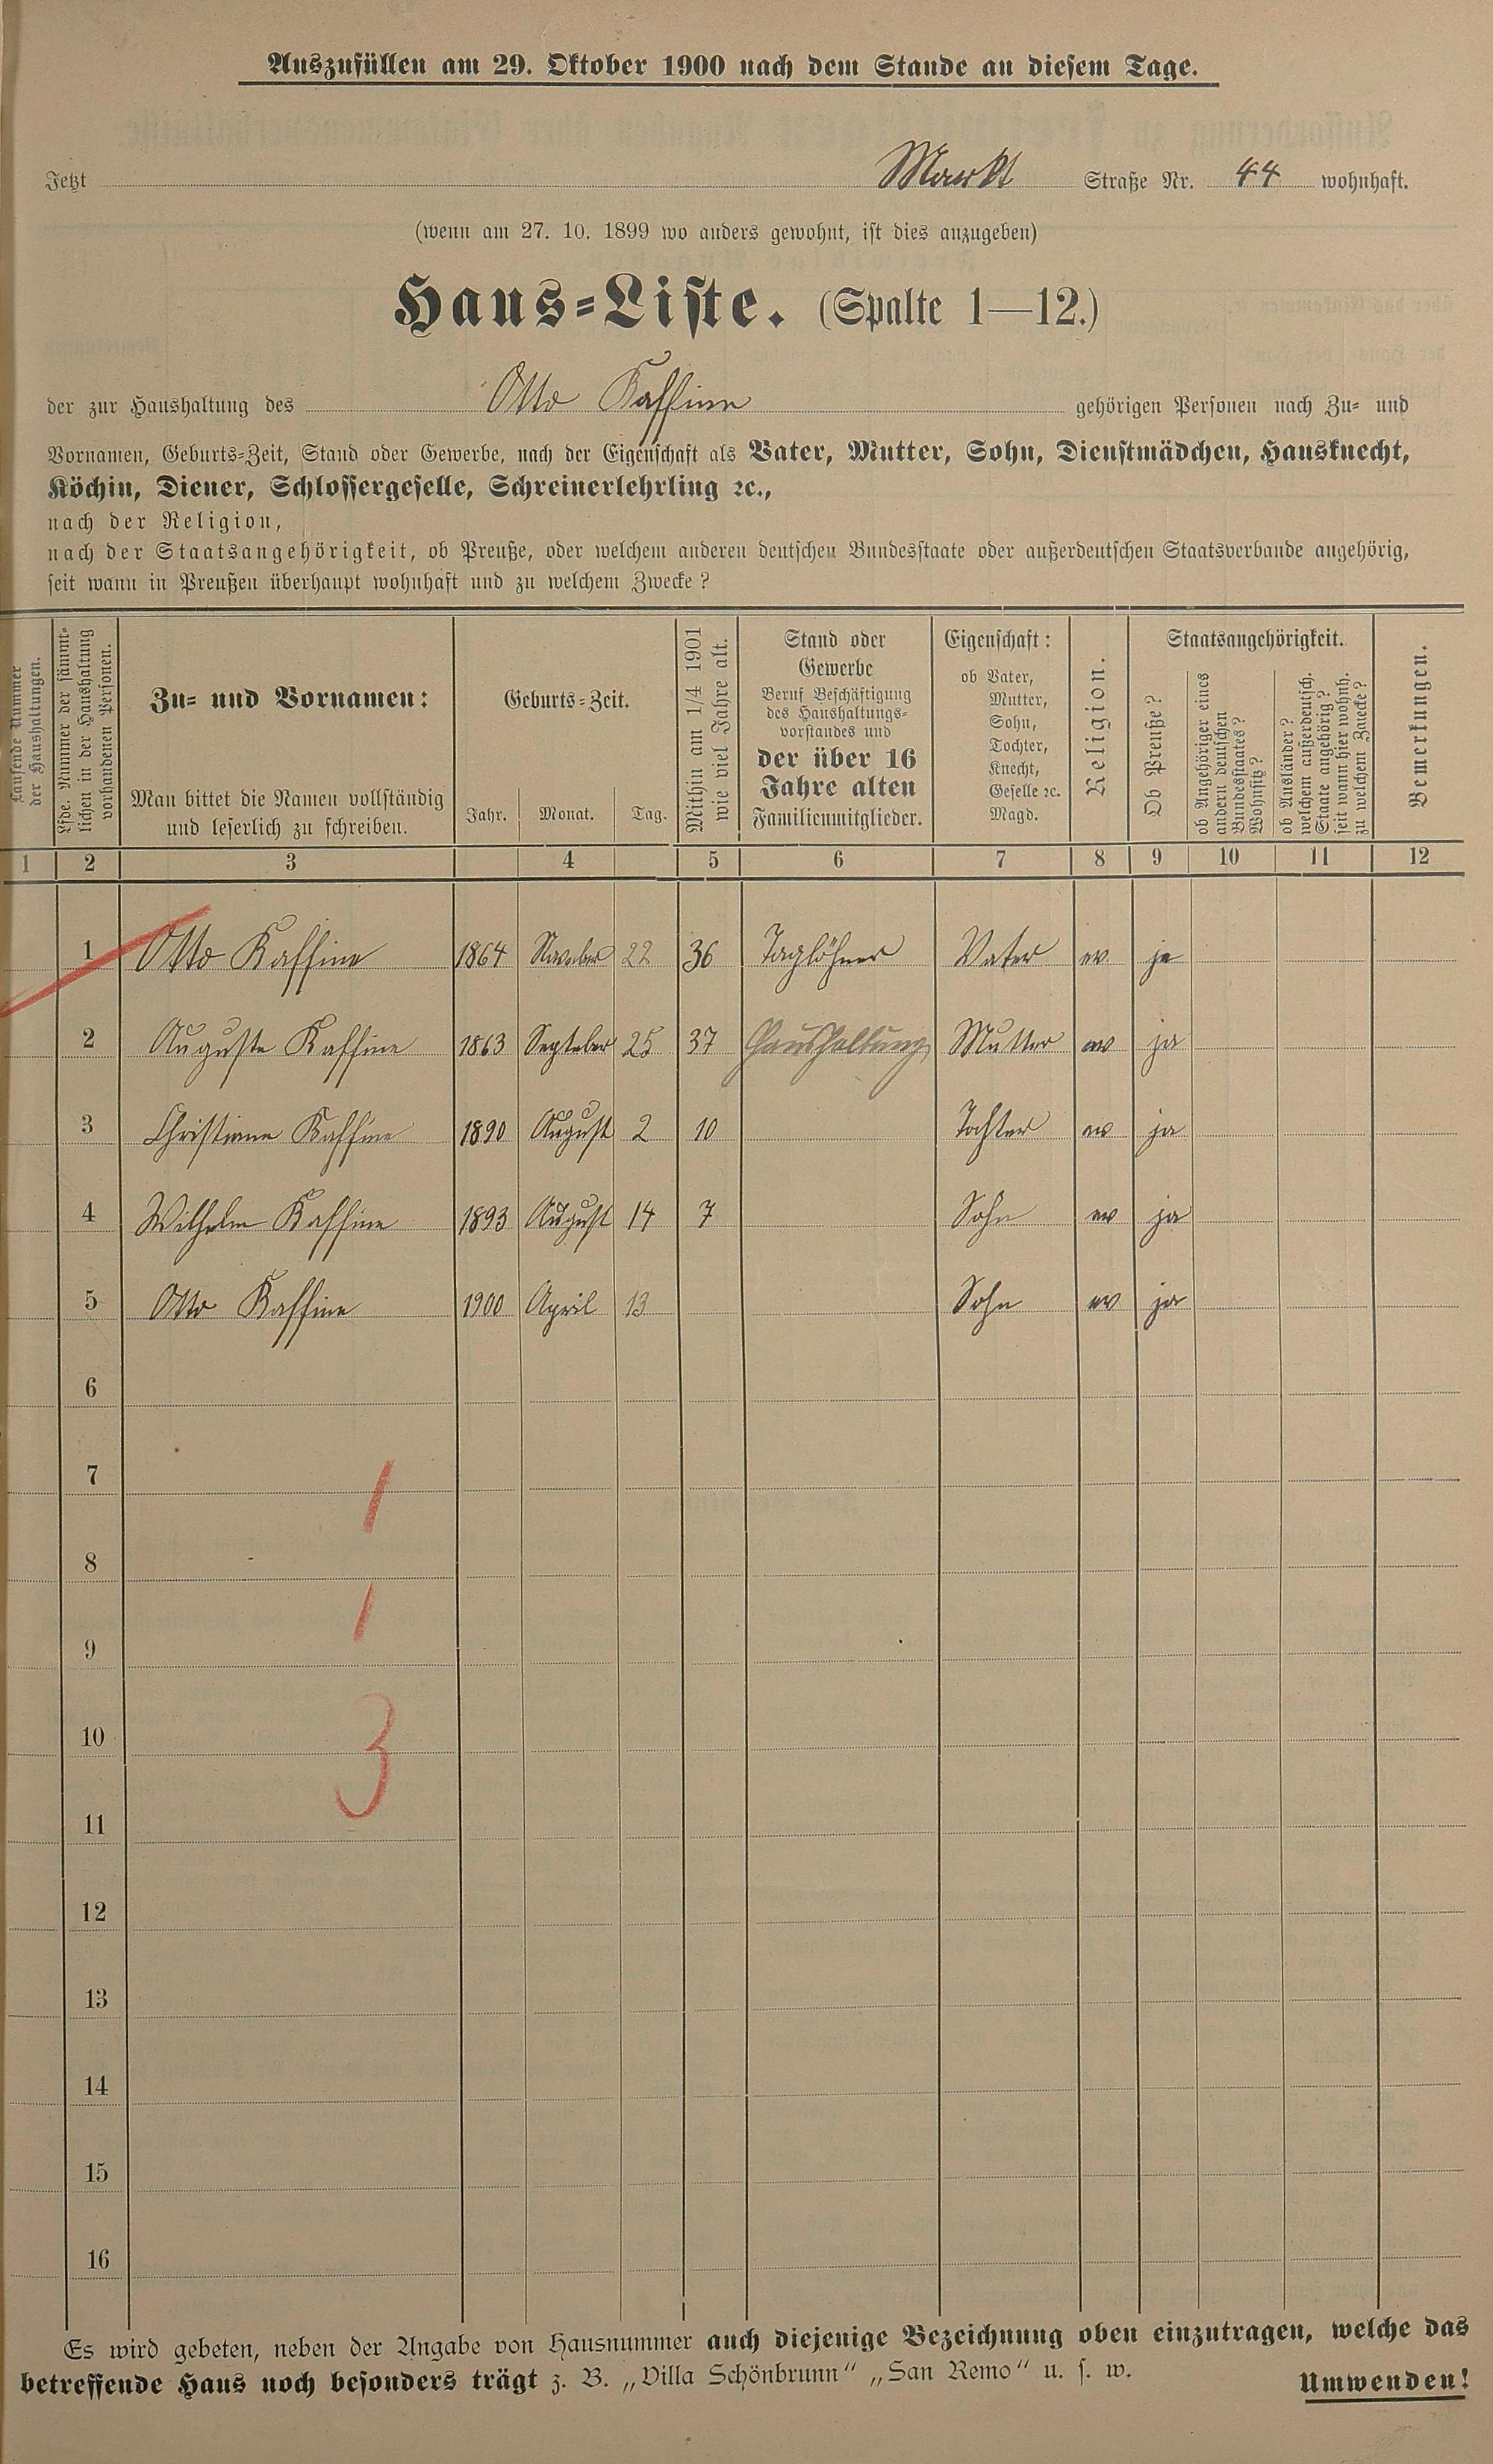 Auszufüllen am 29. Oktober 1900 nach dem Stande an diesem Tage.
Jetzt Markt Straße Nr. 44 wohnhaft.
(wenn am 27. 10. 1899 wo anders gewohnt, ist dies anzugeben)
Haus-Liste. (Spalte 1—12.)
der zur Haushaltung des Otto Kaffine gehörigen Personen nach Zu- und
Vornamen, Geburts-Zeit, Stand oder Gewerbe, nach der Eigenschaft als Vater, Mutter, Sohn, Dienstmädchen, Hausknecht,
Köchin, Diener, Schlossergeselle, Schreinerlehrling ꝛc.,
nach der Religion,
nach der Staatsangehörigkeit, ob Preuße, oder welchem anderen deutschen Bundesstaate oder außerdeutschen Staatsverbande angehörig,
seit wann in Preußen überhaupt wohnhaft und zu welchem Zwecke?
Laufende Nummer
der Haushaltungen.
Lfde. Nummer der sämmt-
lichen in der Haushaltung
vorhandenen Personen.
Zu- und Vornamen:
Man bittet die Namen vollständig
und leserlich zu schreiben.
Geburts-Zeit.
Jahr. Monat. Tag.
Mithin am 1/4 1901
wie viel Jahre alt.
Stand oder
Gewerbe
Beruf Beschäftigung
des Haushaltungs-
vorstandes und
der über 16
Jahre alten
Familienmitglieder.
Eigenschaft:
ob Vater,
Mutter,
Sohn,
Tochter,
Knecht,
Geselle ꝛc.
Magd.
Religion.
Staatsangehörigkeit.
Ob Preuße?
ob Angehöriger eines
andern deutschen
Bundesstaates?
Wohnsitz?
ob Ausländer?
welchem außerdeutsch.
Staate angehörig?
seit wann hier wohnh.
zu welchem Zwecke?
Bemerkungen.
1 2 3 4 5 6 7 8 9 10 11 12
1 Otto Kaffine 1864 November 22 36 Taglöhner Vater ev. ja
2 Auguste Kaffine 1863 Septeber 25 37 Haushaltung Mutter ev ja
3 Christiane Kaffine 1890 August 2 10 Tochter ev ja
4 Wilhelm Kaffine 1893 August 14 7 Sohn ev ja
5 Otto Kaffine 1900 April 13 Sohn ev ja
6
7
1
8
1
9
10
3
11
12
13
14
15
16
Es wird gebeten, neben der Angabe von Hausnummer auch diejenige Bezeichnung oben einzutragen, welche das
betreffende Haus noch besonders trägt z. B. „Villa Schönbrunn“ „San Remo“ u. s. w. Umwenden!